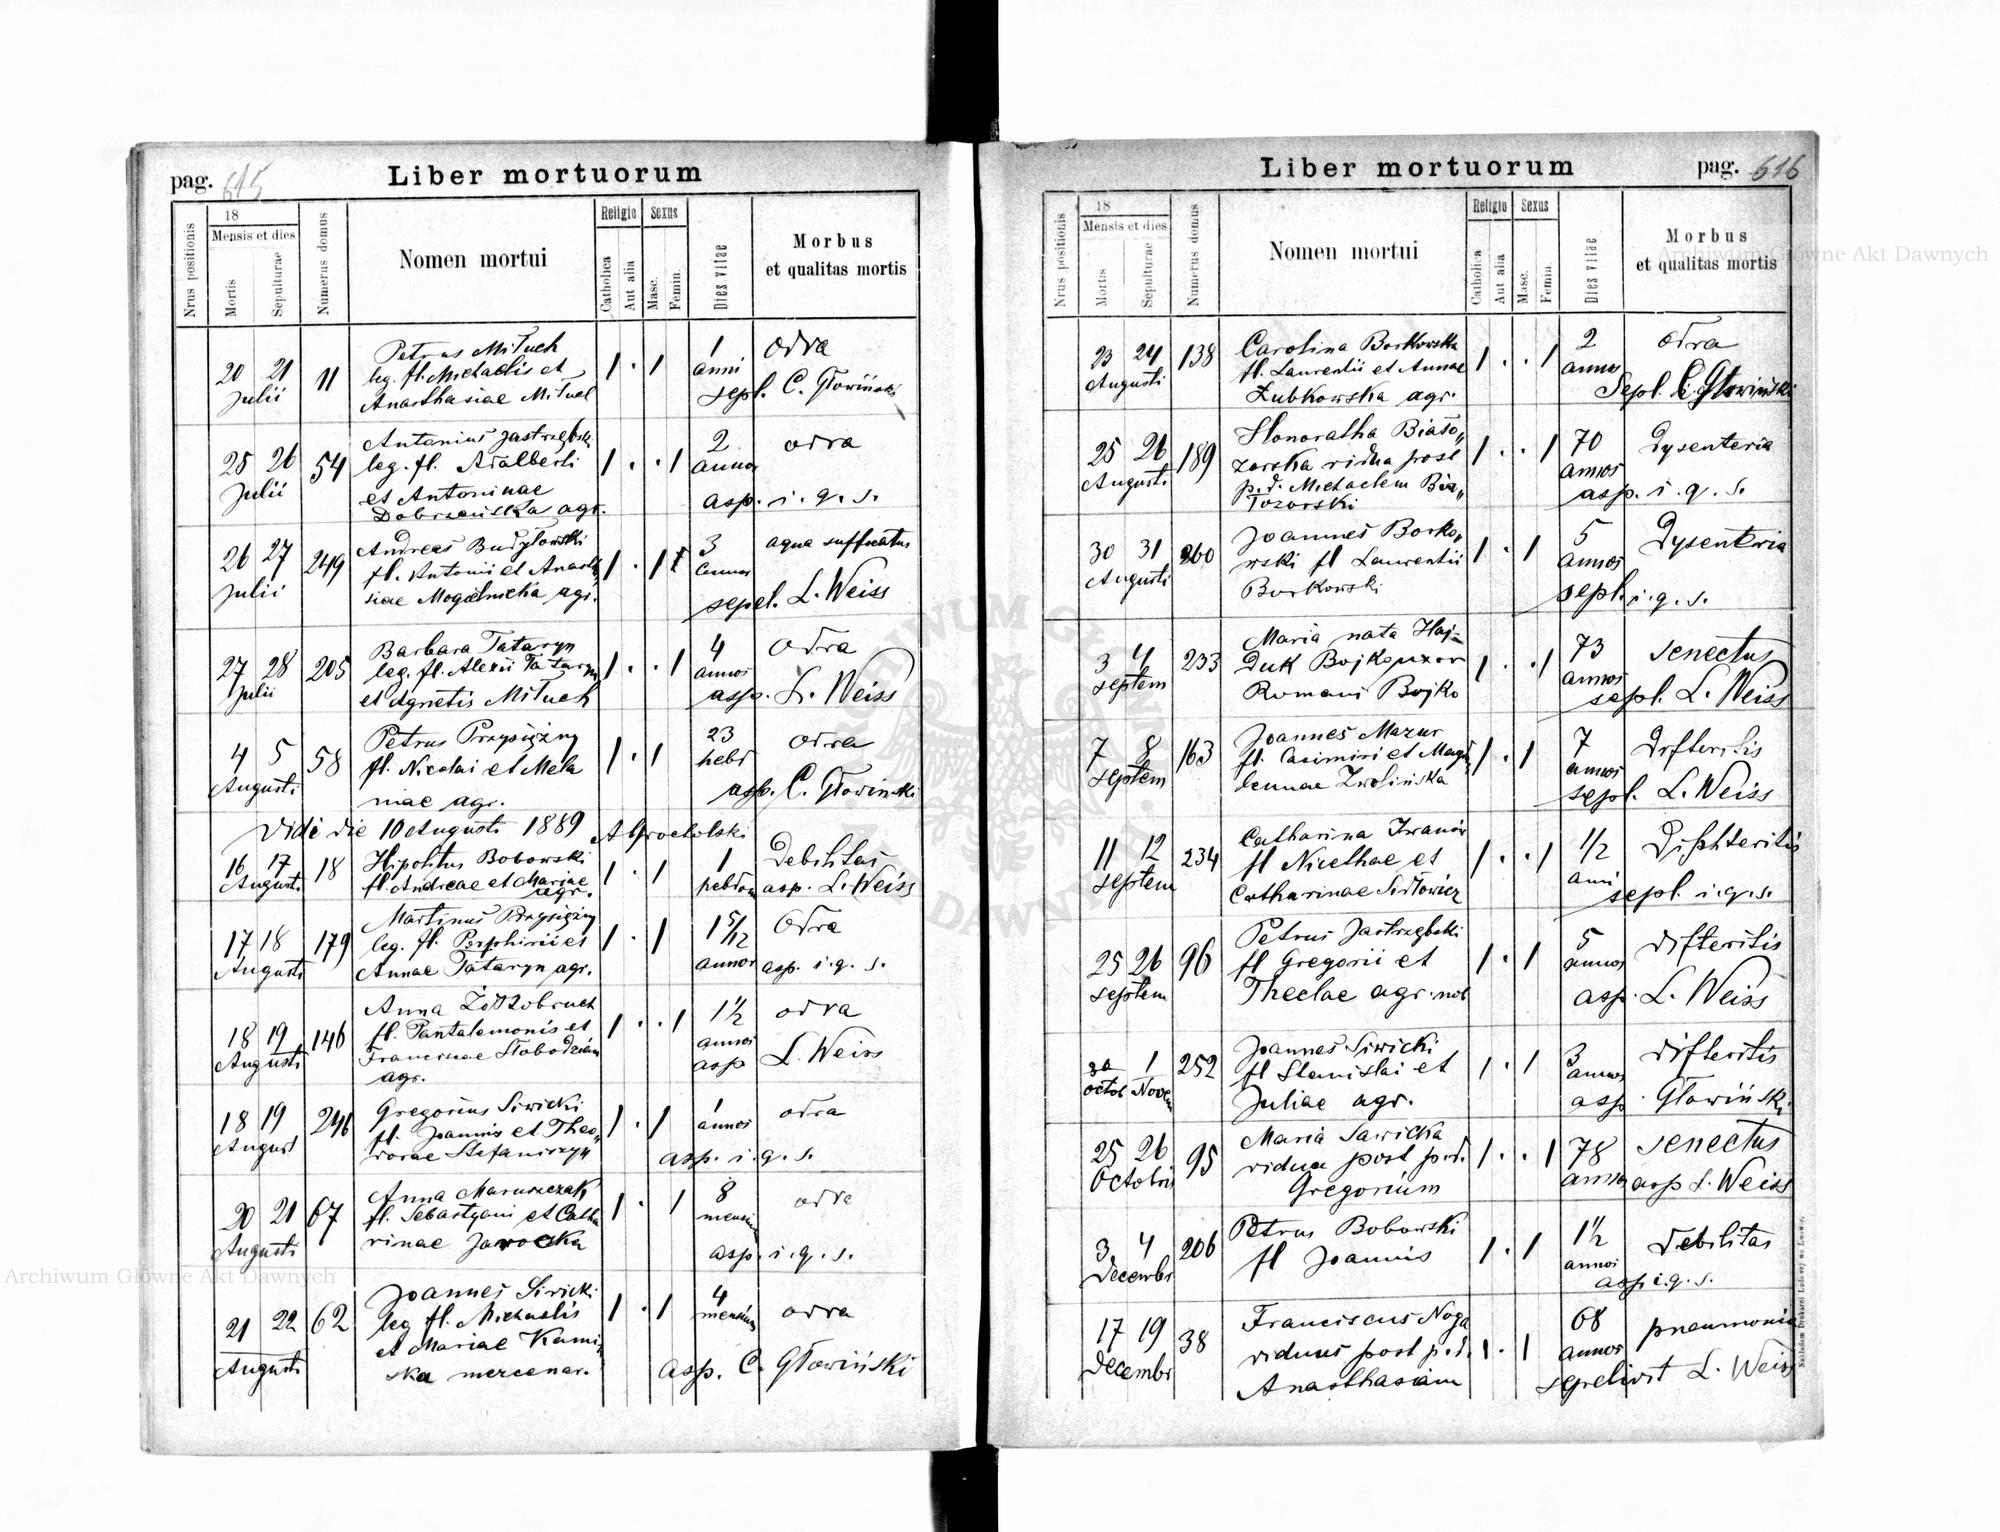 pag. 615
Liber mortuorum
Nrus positionis
18
Mensis et dies
Mortis
Sepulturae
Numerus domus
Nomen mortui
Religio
Catholica
Aut alia
Sexus
Masc.
Femin.
Dies vitae
Morbus
et qualitas mortis
Petrus Mituch
20 21 11 leg. fl. Michaelis et 1 . 1 1 anni odra
Julii Anasthasiae Mituch sepl. C. Głowiński
Antonius Jastrzębski
25 26 54 leg. fl. Adalberti 1 . . 1 2 annor odra
Julii et Antoninae asp. i. q. s.
Dobrzańska agr.
Andreas Budyłowski
26 27 249 fl. Antonii et Anasth 1 . 1 3 annor aqua suffocatus
Julii siae Mogielnicka agr. sepel. L. Weiss
Barbara Tataryn
27 28 205 leg. fl. Alexii Tataryn 1 . . 1 4 annos odra
Julii et Agnetis Mituch asp. L. Weiss
Petrus Przysiężny
4 5 58 fl. Nicolai et Mela 1 . 1 23 hebd odra
Augusti niae agr. asp. C. Głowiński
Vidi die 10 Augusti 1889
16 17 18 Hipolitus Bobowski 1 . 1 1 Debilitas
Augusti fl. Andreae et Mariae agr. hebdom asp. L. Weiss
Martinus Przysiężny
17 18 179 leg. fl. Porphirii et 1 . 1 1 5/12 odra
Augusti Annae Tataryn agr. annor asp. i. q. s.
Anna
18 19 146 fl. Pantalemonis et 1 . . 1 1 1/2 annos odra
Augusti Franciscae Słobodzian asp L. Weiss
agr.
Gregorius Siwicki
18 19 246 fl. Joannis et Theo„ 1 . 1 1 annos odra
August dorae Stefaniszyn asp. i. q. s.
Anna Maruszczak
20 21 67 fl. Sebastyani et Catha 1 . 1 8 mensium odra
Augusti rinae Jarocka asp. i. q. s.
Joannes Siwicki
21 22 62 leg fl. Michaelis 1 . 1 4 mensium odra
Augusti et Mariae Kamiń
ska mercenar. asp. C. Głowiński
Liber mortuorum
pag. 616
Nrus positionis
18
Mensis et dies
Mortis
Sepulturae
Numerus domus
Nomen mortui
Religio
Catholica
Aut alia
Sexus
Masc.
Femin.
Dies vitae
Morbus
et qualitas mortis
23 24 138 Carolina Borkowska 1 . . 1 2 odra
Augusti fl. Laurentii et Annae annos
Zubkowska agr. Sepl. C. Głowiński
Honoratha Biało„
25 26 189 zorska vidua post 1 . . 1 70 Dysenteria
Augusti p. d. Michaelem Bia„ annos
łozorski asp. i. q. s.
Joannes Borko„
30 31 260 wski fl Laurentii 1 . 1 5 annos Dysenteria
Augusti Borkowski sepl. i. q. s.
Maria nata Haj=
3 4 233 duk Bojko uxor 1 . . 1 73 annos senectus
septem Romani Bojko sepl. L. Weiss
Joannes Mazur
7 8 163 fl. Casimiri et Magda 1 . 1 7 annos Difteritis
septem lennae Zwolińska sepl. L. Weiss
Catharina Iwanów
11 12 234 fl Nicethae et 1 . . 1 1/2 ani Diphteritis
septem Catharinae Sidłowicz sepl. i. q. s.
Petrus Jastrzębski
25 26 96 fl Gregorii et 1 . 1 5 annos difteritis
septem Theclae agr. nob asp. L. Weiss
Joannes Siwicki
30 1 252 fl Stanislai et 1 . 1 3 annos difteritis
octob Novem Juliae agr. asp. Głowiński
Maria Sawicka
25 26 95 vidua post p. d. 1 . . 1 78 senectus
Octobris Gregorium annos asp L. Weiss
3 4 206 Petrus Bobowski 1 . 1 1 1/2 debilitas
Decembr fl Joannis annos asp i. q. s.
17 19 38 Franciscus Noga 68 pneumonia
Decembr viduus post p. d. 1 . 1 annos
Anasthasiam sepelivit L. Weiss
Nakładem Drukarni Ludowej we Lwowie.
Archiwum Główne Akt Dawnych
Archiwum Główne Akt Dawnych
ARCHIWUM GŁÓWNE AKT DAWNYCH